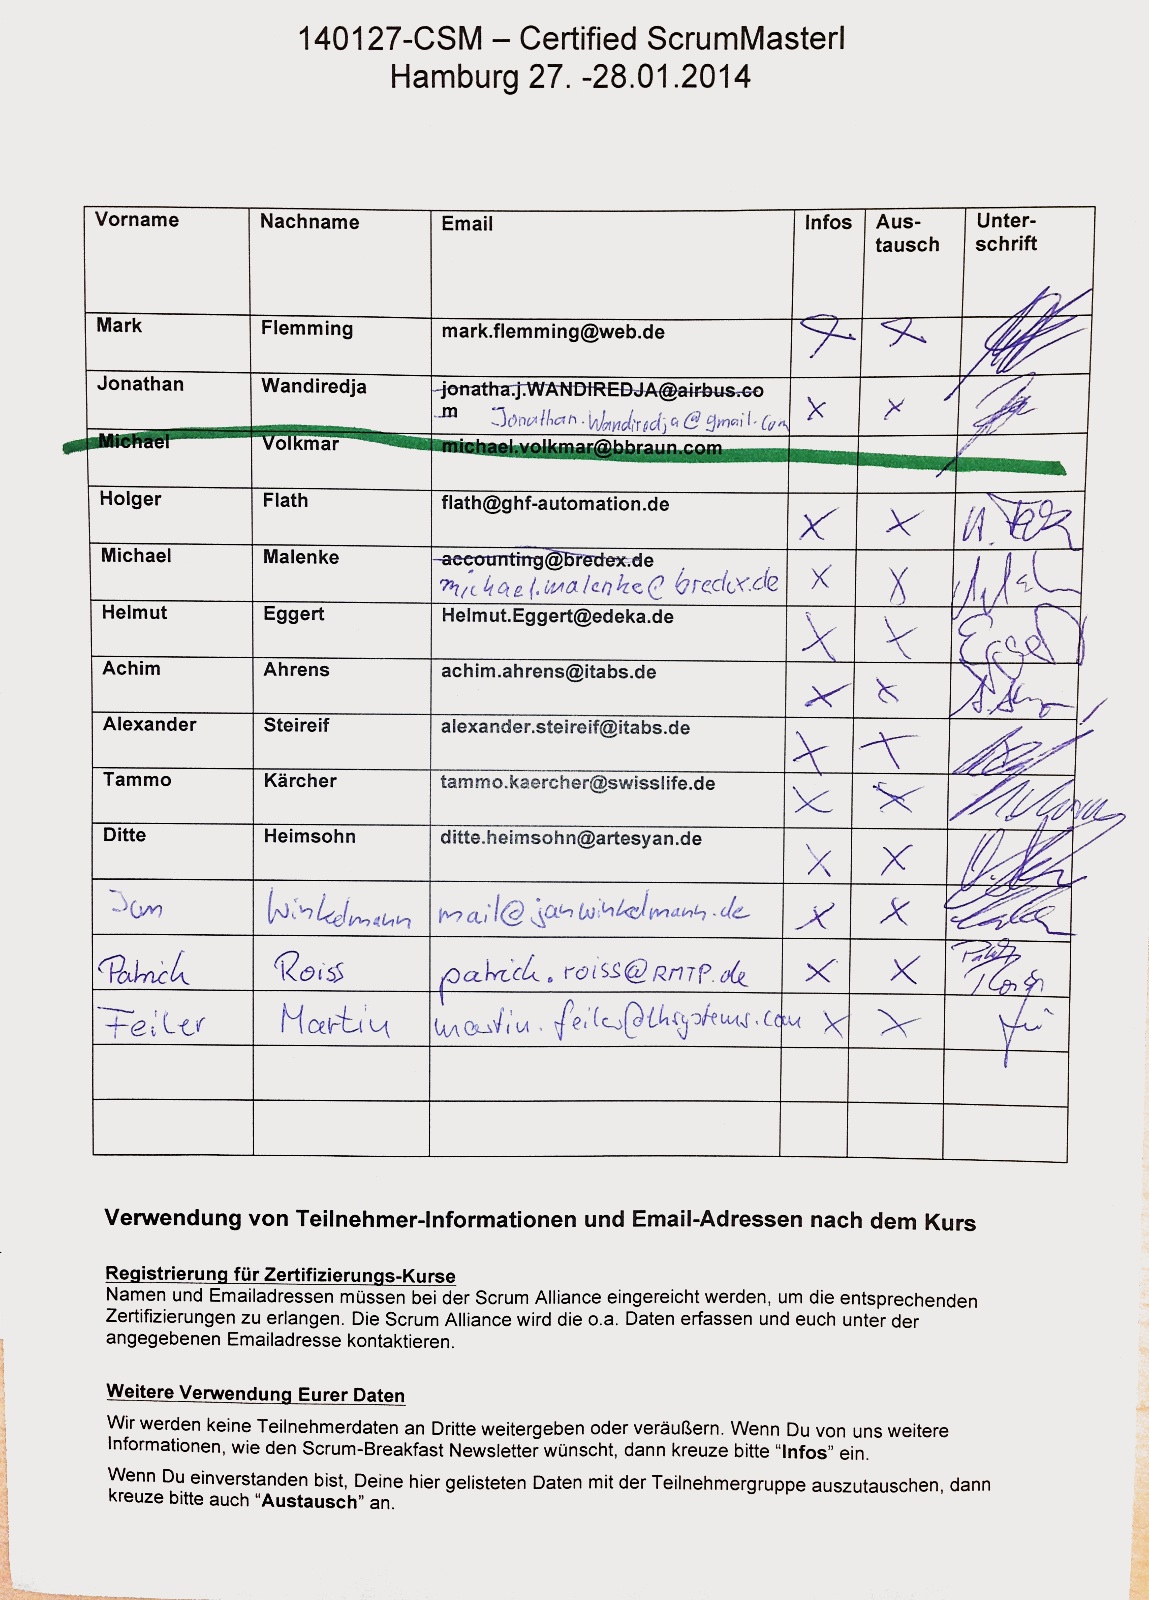 140127-CSM – Certified ScrumMasterI
Hamburg 27. -28.01.2014
Vorname Nachname Email Infos Aus- Unter-
tausch schrift
Mark Flemming mark.flemming@web.de
Jonathan Wandiredja jonatha.j.WANDIREDJA@airbus.co
m Jonathan.Wandiredja@gmail.com X X
Michael Volkmar michael.volkmar@bbraun.com
Holger Flath flath@ghf-automation.de X X
Michael Malenke accounting@bredex.de
michael.malenke@bredex.de X X
Helmut Eggert Helmut.Eggert@edeka.de X X
Achim Ahrens achim.ahrens@itabs.de X X
Alexander Steireif alexander.steireif@itabs.de X X
Tammo Kärcher tammo.kaercher@swisslife.de X X
Ditte Heimsohn ditte.heimsohn@artesyan.de X X
Jan Winkelmann mail@janwinkelmann.de X X
Patrick Roiss patrick.roiss@RMTP.de X X
Feiler Martin martin.feiler@lhsystems.com X X
Verwendung von Teilnehmer-Informationen und Email-Adressen nach dem Kurs
Registrierung für Zertifizierungs-Kurse
Namen und Emailadressen müssen bei der Scrum Alliance eingereicht werden, um die entsprechenden
Zertifizierungen zu erlangen. Die Scrum Alliance wird die o.a. Daten erfassen und euch unter der
angegebenen Emailadresse kontaktieren.
Weitere Verwendung Eurer Daten
Wir werden keine Teilnehmerdaten an Dritte weitergeben oder veräußern. Wenn Du von uns weitere
Informationen, wie den Scrum-Breakfast Newsletter wünscht, dann kreuze bitte “Infos” ein.
Wenn Du einverstanden bist, Deine hier gelisteten Daten mit der Teilnehmergruppe auszutauschen, dann
kreuze bitte auch “Austausch” an.